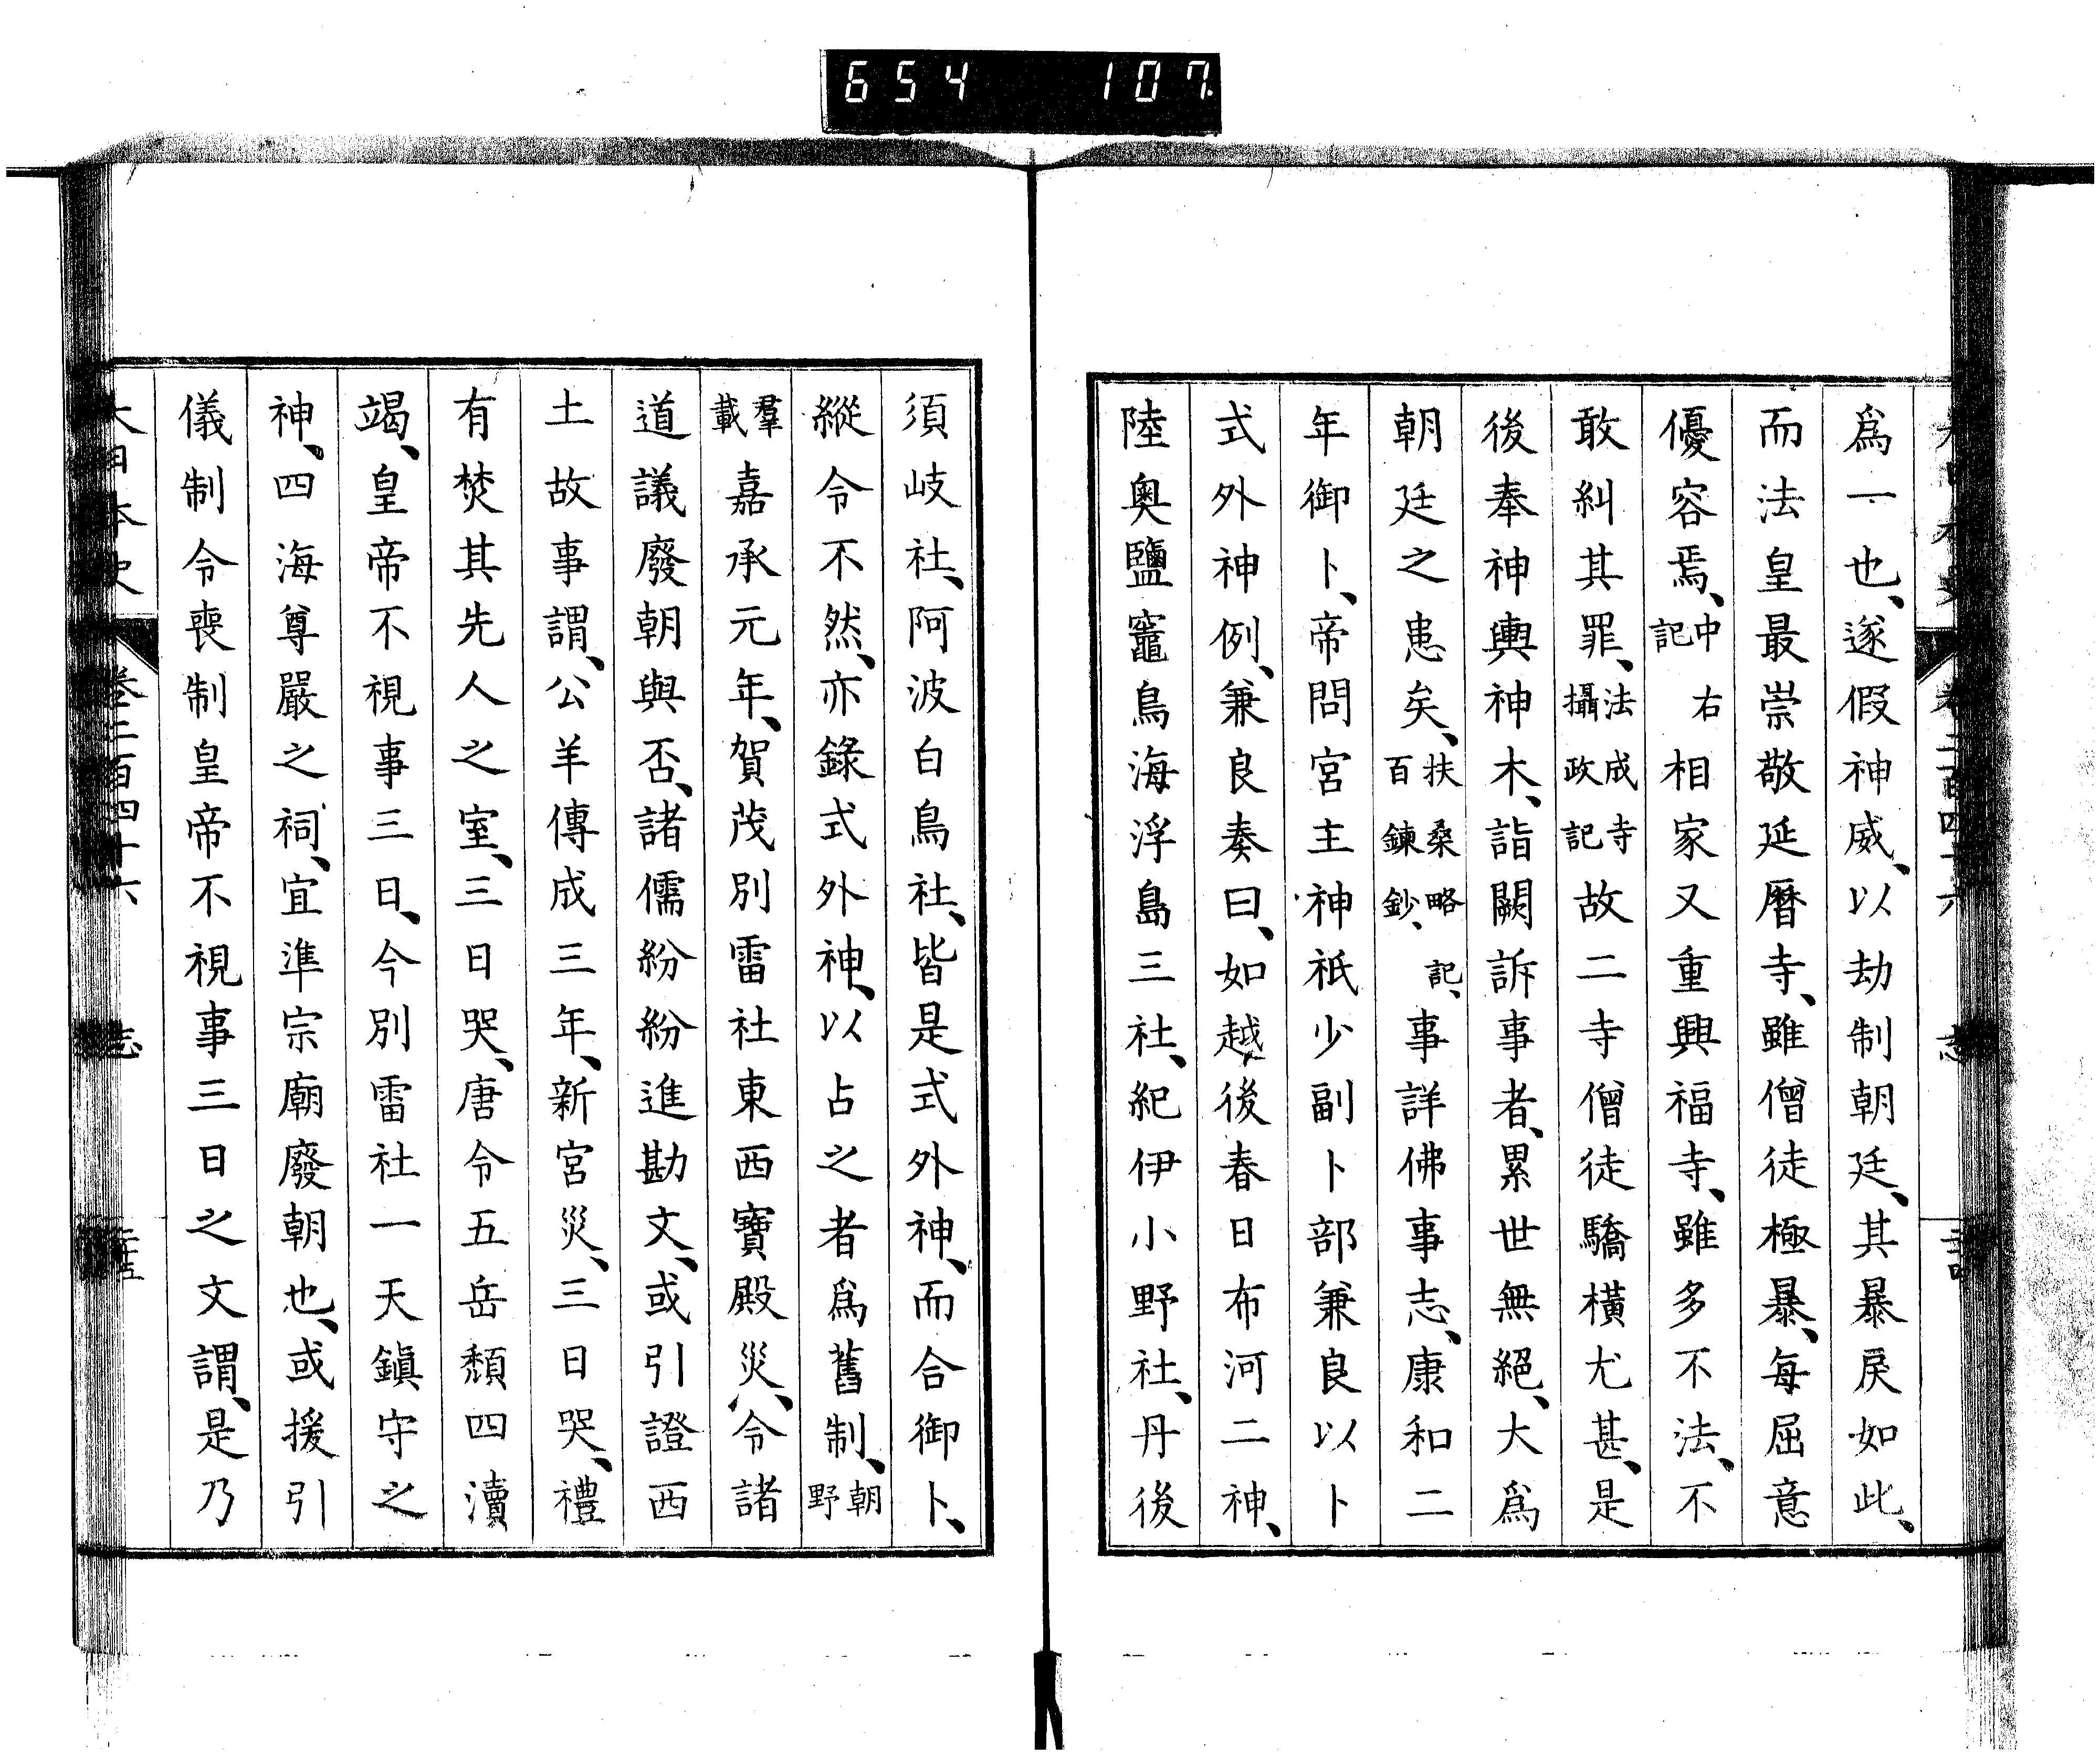 654 107
爲一也、遂假神威、以劫制朝廷、其暴戾如此、
而法皇最崇敬延曆寺、雖僧徒極暴、每屈意
優容焉、中右記相家又重興福寺、雖多不法、不
敢糾其罪、法成寺攝政記故二寺僧徒驕橫尤甚、是
後奉神輿神木、詣闕訴事者、累世無絕、大爲
朝廷之患矣、扶桑略記、百鍊鈔、事詳佛事志、康和二
年御卜、帝問宮主神祇少副卜部兼良以卜
式外神例、兼良奏曰、如越後春日布河二神、
陸奧鹽竈鳥海浮島三社、紀伊小野社、丹後
須岐社、阿波白鳥社、皆是式外神、而合御卜、
縱令不然、亦錄式外神、以占之者爲舊制、朝野
羣載嘉承元年、賀茂別雷社東西寶殿災、令諸
道議廢朝與否、諸儒紛紛進勘文、或引證西
土故事謂、公羊傳成三年、新宮災、三日哭、禮
有焚其先人之室、三日哭、唐令五岳頹四瀆
竭、皇帝不視事三日、今別雷社一天鎭守之
神、四海尊嚴之祠、宜準宗廟廢朝也、或援引
儀制令喪制皇帝不視事三日之文謂、是乃
大日本史 卷二百四十六 志